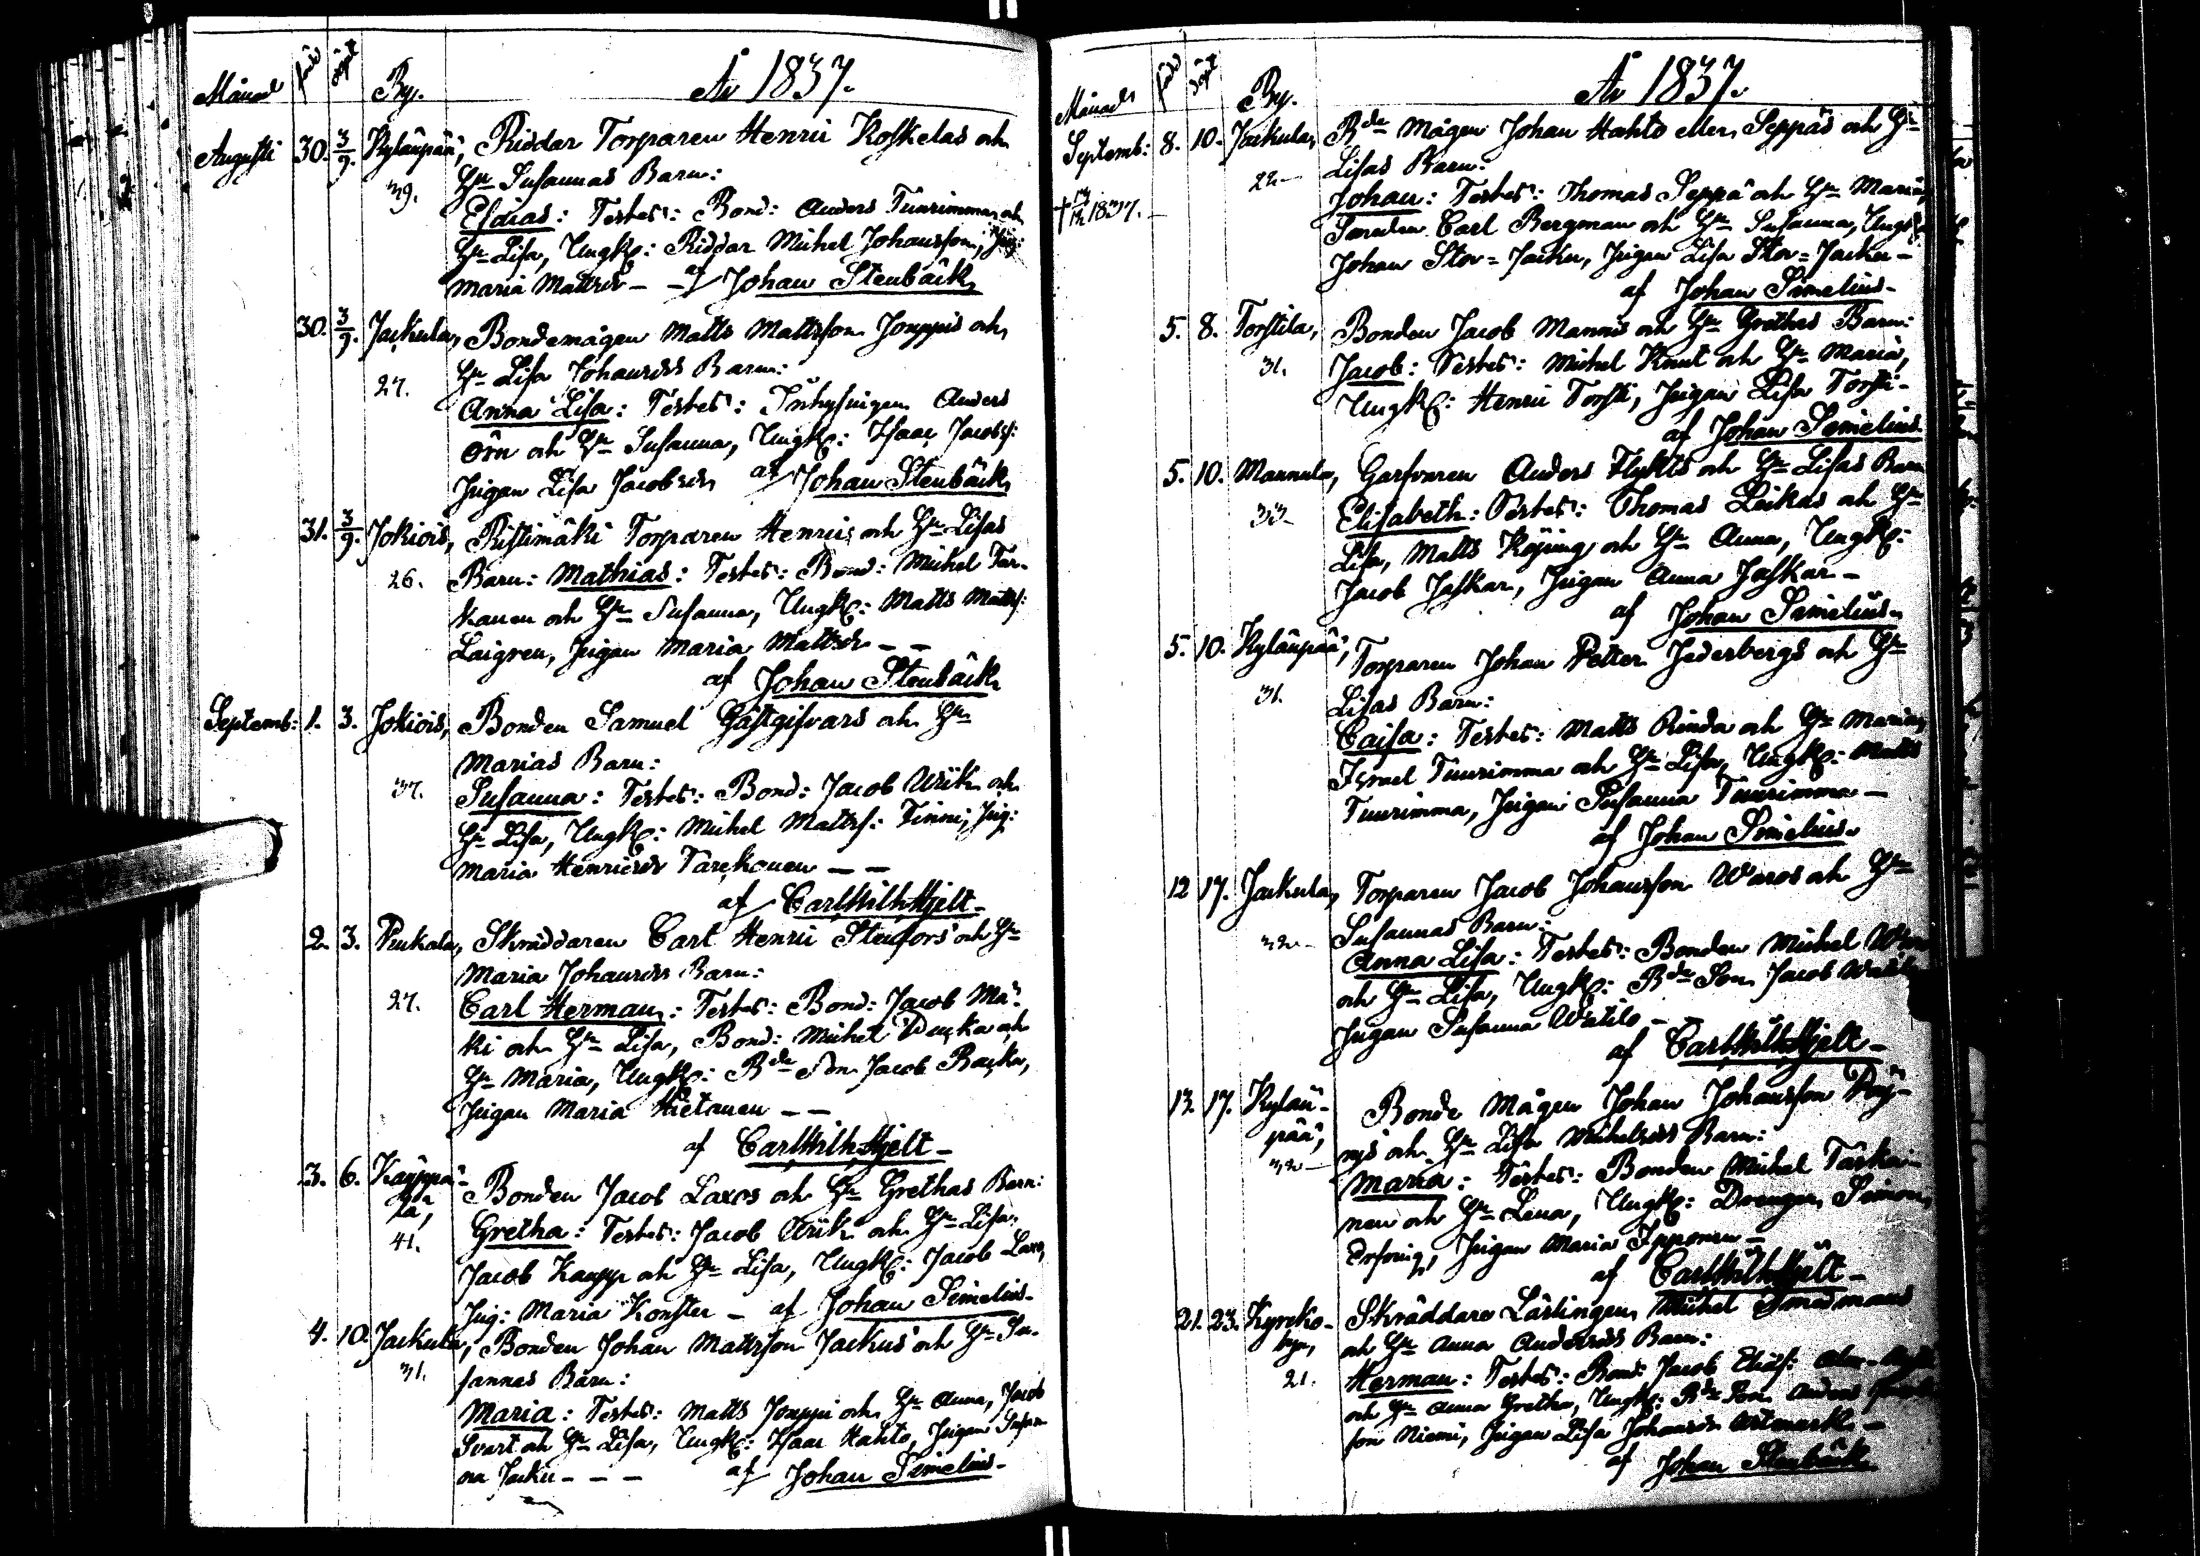 År 1837.
Månad född döpt By.
Augusti 30. 3/9. Kyläupää, Riddar Torparen Henric Koskelas och
39. Hu Susannas Barn:
Esaias: Testes: Bond: Anders Tuurimma och
Hu Lisa, Ungk: Riddar Michel Johansson, Pig:
Maria Mattsdr – af Johan Stenbäck
30. 3/9. Jackula, Bondemågen Matts Mattsson Jouppis och
27. Hu Lisa Johansdrs Barn:
Anna Lisa: Testes: Inhysingen Anders
Örn och Hu Susanna, Ungk: Isaac Jacobss:
Pigan Lisa Jacobsdr af Johan Stenbäck
31. 3/9. Jokiois, Ristimäki Torparen Henrics och Hu Lisas
26. Barn: Mathias: Testes: Bond: Michel Tar-
kanen och Hu Susanna, Ungk: Matts Matts:
Laigren, Pigan Maria Mattsdr – –
af Johan Stenbäck
Septemb: 1. 3. Jokiois, Bonden Samuel Gästgifvars och Hu
Marias Barn:
37. Susanna: Testes: Bond: Jacob Wrik och
Hu Lisa, Ungk: Michel Mattss: Finni, Pig:
Maria Henricsdr Tarckonen – –
af Carl Wilh Hjelt –
2. 3. Penkala, Skräddaren Carl Henric Stenfors och Hu
Maria Johansdrs Barn:
27. Carl Herman: Testes: Bond: Jacob Mä-
ki och Hu Lisa, Bond: Michel Packa och
Hu Maria, Ungk: Bde Son Jacob Backa,
Pigan Maria Hietanen – –
af Carl Wilh Hjelt –
3. 6. Kauppa- Bonden Jacob Laxos och Hu Grethas Barn:
la,
41. Gretha: Testes: Jacob Wrik och Hu Lisa,
Jacob Kaupp och Hu Lisa, Ungk: Jacob Laxo,
Pig: Maria Konster – af Johan Simelius –
4. 10. Jackula, Bonden Johan Mattsson Jackus och Hu Su-
31. sannas Barn:
Maria: Testes: Matts Jouppi och Hu Anna, Jacob
Svart och Hu Lisa, Ungk: Isaac Hahto, Pigan Susan-
na Jacku – – – af Johan Simelius –
År 1837.
Månad född döpt By.
Septemb: 8. 10. Jackula, Bde Mågen Johan Hahto eller Seppäs och Hu
22 – Lisas Barn:
Johan: Testes: Thomas Seppä och Hu Maria,
Smeden Carl Bergman och Hu Susanna, Ungk:
Johan Stor=Jacku, Pigan Lisa Stor=Jacku –
af Johan Simelius –
5. 8. Torstila, Bonden Jacob Mannis och Hu Grethas Barn:
31. Jacob: Testes: Michel Knut och Hu Maria,
Ungk: Henric Torsti, Pigan Lisa Torsti –
af Johan Simelius
5. 10. Mannula, Garfvaren Anders Flykts och Hu Lisas Barn
33 – Elisabeth: Testes: Thomas Leikas och Hu
Lisa, Matts Köping och Hu Anna, Ungk:
Jacob Jaskar, Pigan Anna Jaskar –
af Johan Simelius –
5. 10. Kyläupää, Torparen Johan Petter Jederbergs och Hu
31. Lisas Barn:
Caisa: Testes: Matts Rinda och Hu Maria,
Israel Tuurimma och Hu Lisa, Ungk: Matts
Tuurimma, Pigan Susanna Tuurimma –
af Johan Simelius –
12 17. Jackula, Torparen Jacob Johansson Waros och Hu
Susannas Barn:
32 – Anna Lisa: Testes: Bonden Michel
och Hu Lisa, Ungk: Bde Son Jacob
Pigan Susanna Watilo –
af Carl Wilh Hjelt –
13. 17. Kyläu- Bonde Mågen Johan Johansson Pöy-
pää, rys och Hu Lisa Michelsdrs Barn:
32 – Maria: Testes: Bonden Michel Tarka-
nen och Hu Lena, Ungk: Drengen Simon
Pigan Maria Ipponen –
af Carl Wilh Hjelt –
21. 23. Kyrcko- Skräddare Lärlingen Michel Smedmans
byn, och Hu Anna Andersdrs Barn:
21. Herman: Testes: Bond: Jacob Eliass:
och Hu Anna Gretha, Ungk: Bde Son Anders
son Niemi, Pigan Lisa Johansdr
af Johan Stenbäck